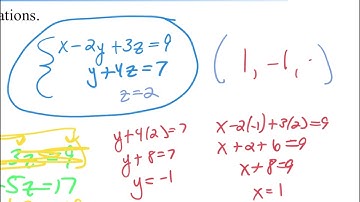 ations.
x-2y+3z=9
y+4z=7
z=2
(1,-1,
3z=9
-5z=17
y+4(2)=7
y+8=7
y=-1
x-2(-1)+3(2)=9
x+2+6=9
x+8=9
x=1